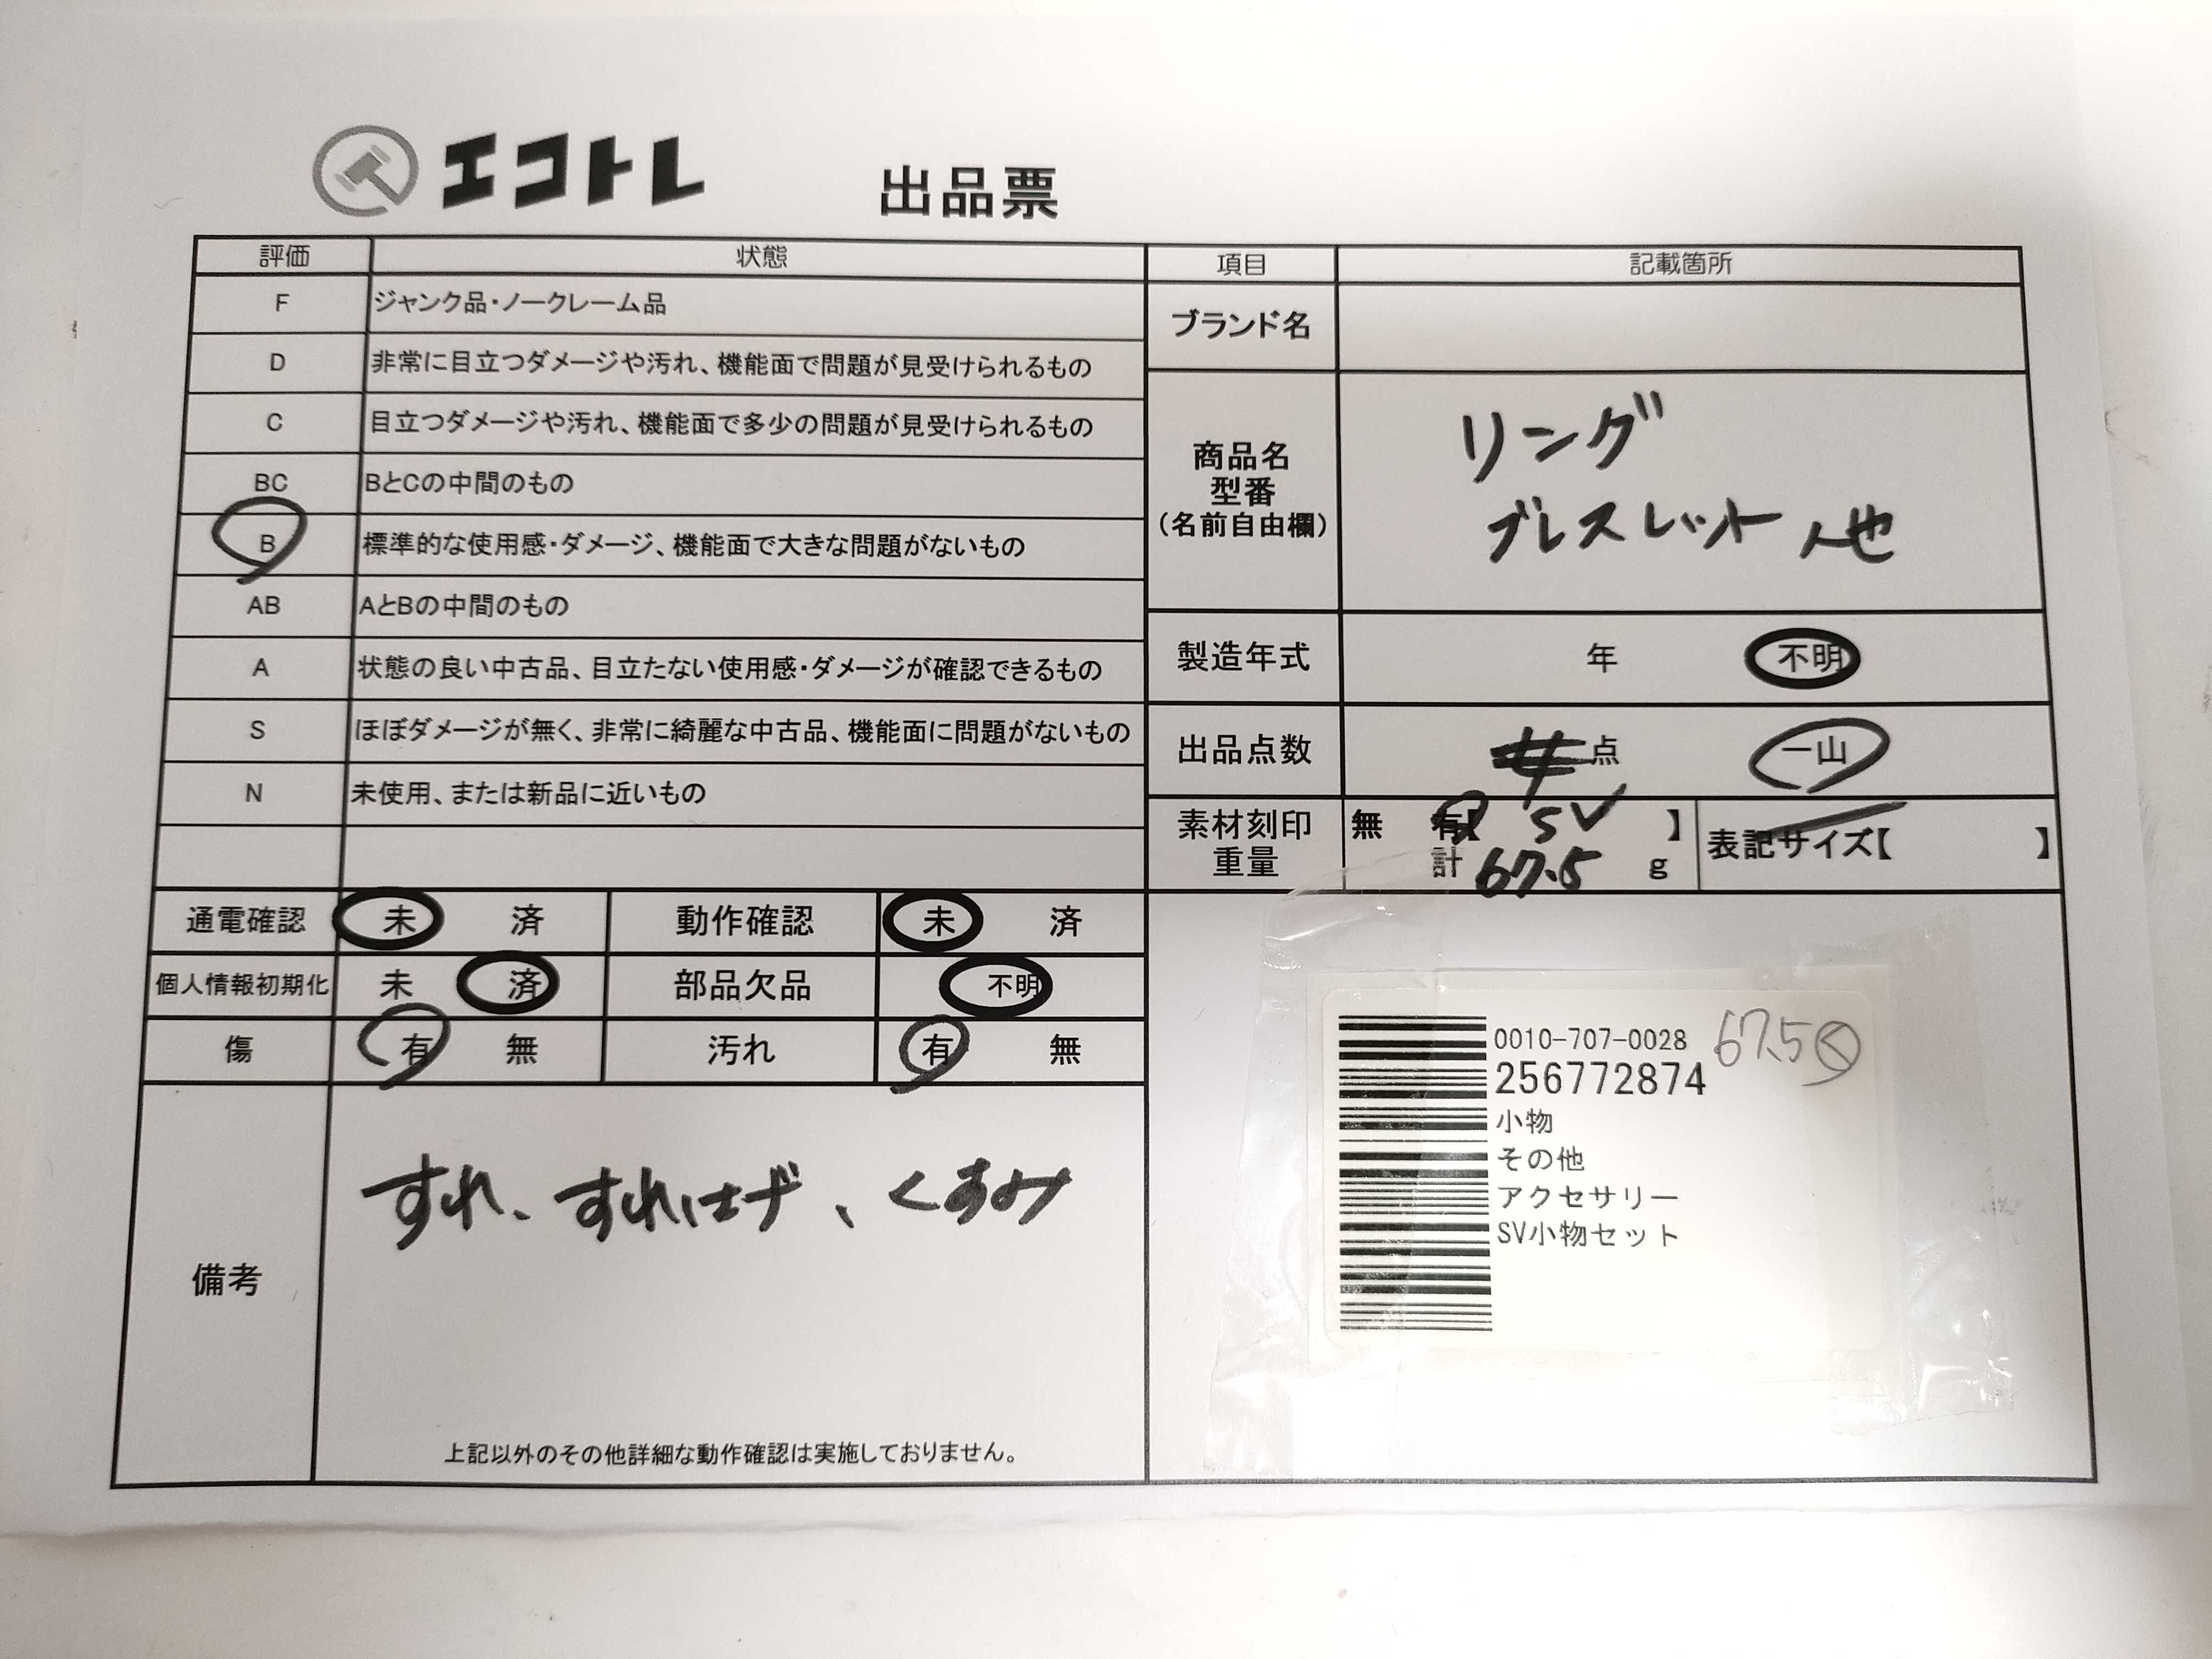 エコトレ
出品票
評価 状態
F ジャンク品・ノークレーム品
D 非常に目立つダメージや汚れ、機能面で問題が見受けられるもの
C 目立つダメージや汚れ、機能面で多少の問題が見受けられるもの
BC BとCの中間のもの
B 標準的な使用感・ダメージ、機能面で大きな問題がないもの
AB AとBの中間のもの
A 状態の良い中古品、目立たない使用感・ダメージが確認できるもの
S ほぼダメージが無く、非常に綺麗な中古品、機能面に問題がないもの
N 未使用、または新品に近いもの
項目 記載箇所
ブランド名
商品名
型番
(名前自由欄)
リング
ブレスレット 他
製造年式 年 不明
出品点数 点 一山
素材刻印
重量
無 有【 SV 】
計 67.5 g
表記サイズ【 】
通電確認 未 済 動作確認 未 済
個人情報初期化 未 済 部品欠品 不明
傷 有 無 汚れ 有 無
備考
すれ、すれはげ、くすみ
上記以外のその他詳細な動作確認は実施しておりません。
0010-707-0028
67.5
256772874
小物
その他
アクセサリー
SV小物セット